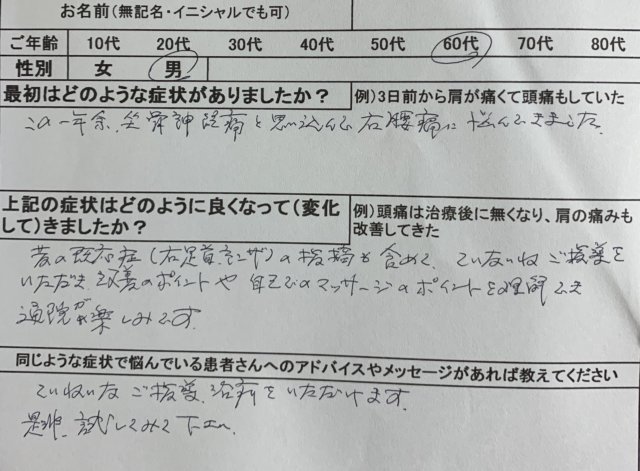 お名前(無記名・イニシャルでも可)
ご年齢 10代 20代 30代 40代 50代 60代 70代 80代
性別 女 男
最初はどのような症状がありましたか? 例)3日前から肩が痛くて頭痛もしていた
この一年余、坐骨神経痛と思い込んで右腰痛に悩んできました。
上記の症状はどのように良くなって(変化 例)頭痛は治療後に無くなり、肩の痛みも
して)きましたか? 改善してきた
昔の既応症(右足首、右ヒザ)の指摘も含めて、ていねいなご指導を
いただき、改善のポイントや自宅でのマッサージのポイントを理解でき
通院が楽しみです。
同じような症状で悩んでいる患者さんへのアドバイスやメッセージがあれば教えてください
ていねいなご指導、治療をいただけます。
是非、試してみて下さい。